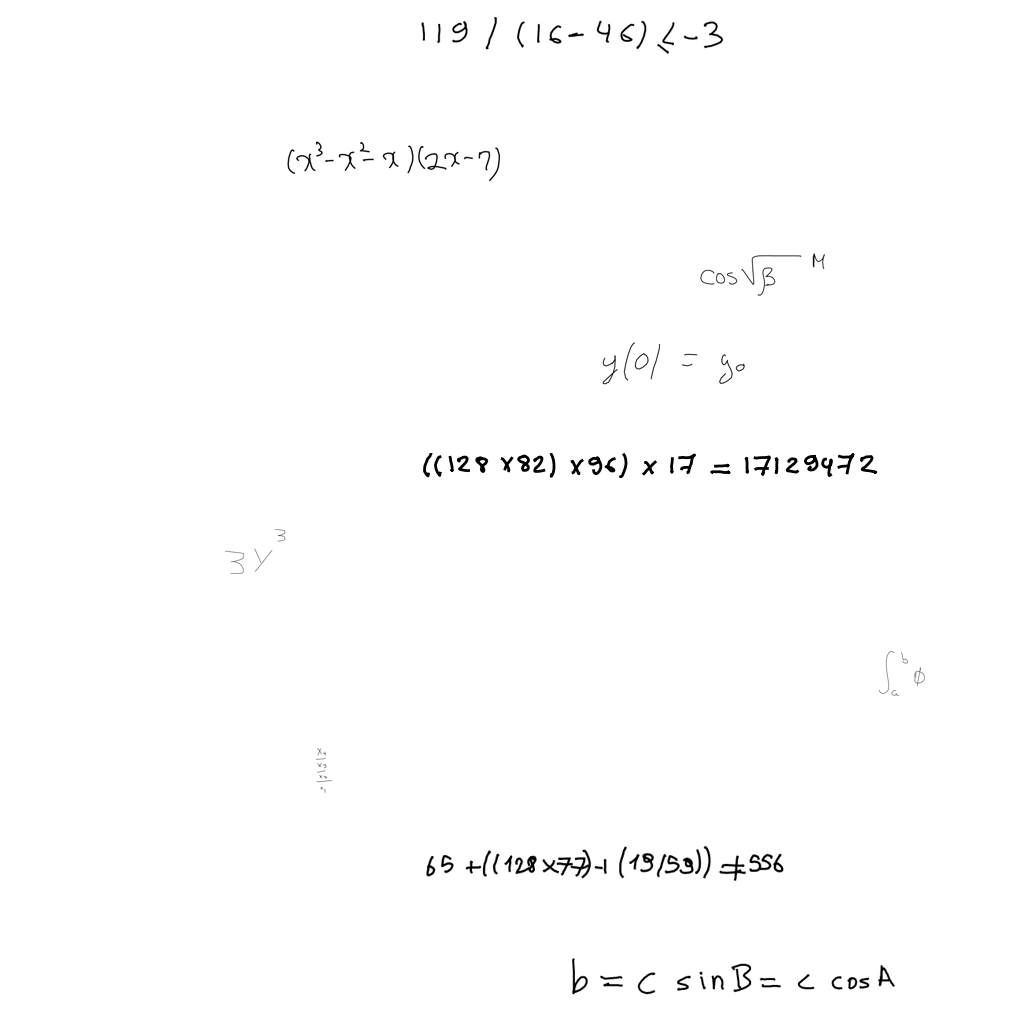 119 / (16 - 46) ≤ -3
(x³ - x² - x)(2x - 7)
cos √β ^M
y(0) = y₀
((128 × 82) × 96) × 17 = 17129472
3y³
∫ₐᵇ φ
65 + ((128 × 77) + (19/59)) ≠ 556
b = c sin B = c cos A